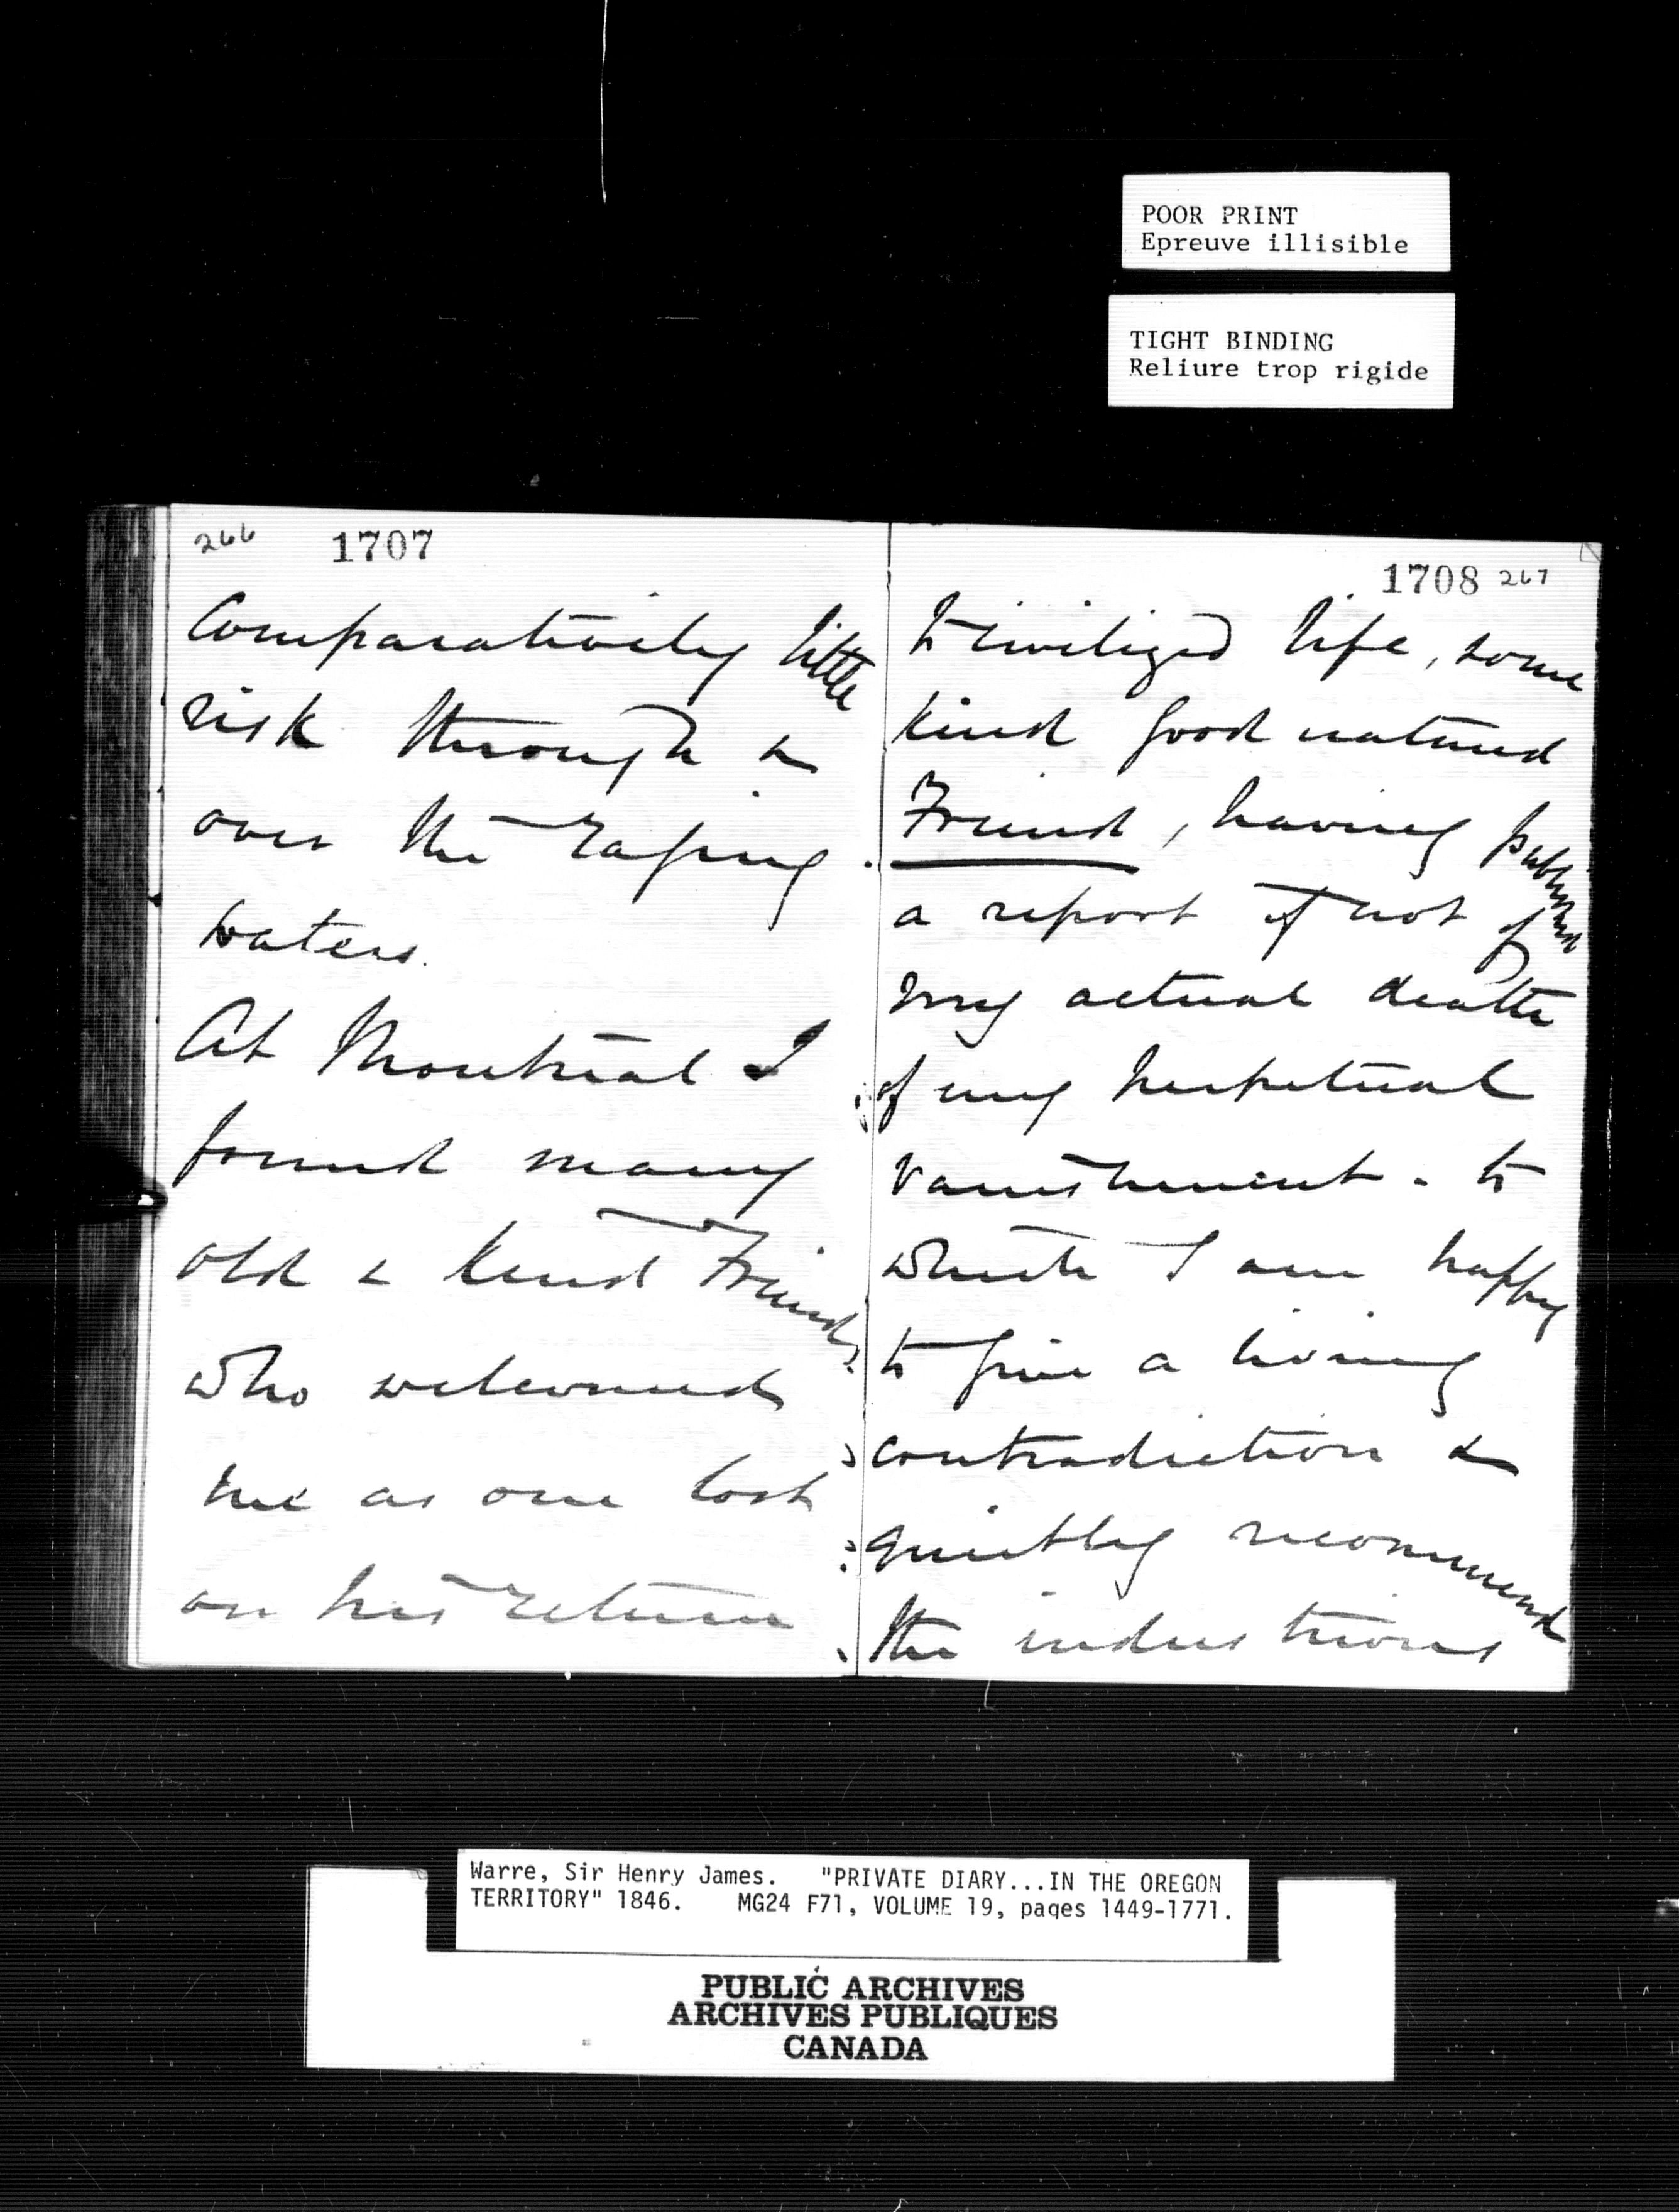 POOR PRINT
Epreuve illisible
TIGHT BINDING
Reliure trop rigide
266 1707
Comparatively little
risk through &
over the raging
waters.
At Montreal I
found many
old & kind Friends
who welcomed
me as one lost
on his return
1708 267
to civilized life, some
kind good natured
Friend, having published
a report if not of
my actual death
of my perpetual
vanishment. to
which I am happy
to give a living
contradiction &
quietly recommend
the industrious
Warre, Sir Henry James. "PRIVATE DIARY...IN THE OREGON
TERRITORY" 1846. MG24 F71, VOLUME 19, pages 1449-1771.
PUBLIC ARCHIVES
ARCHIVES PUBLIQUES
CANADA